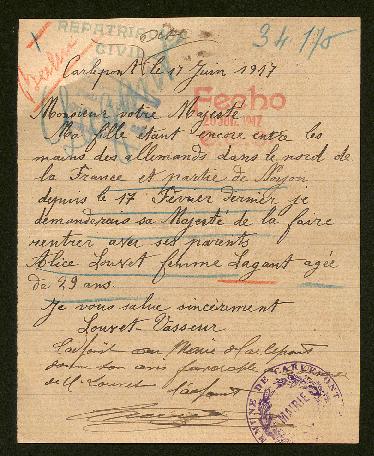 REPATRIADO
CIVIL
34.115
Berlin
Carlepont, le 17 Juin 1917
Fecho
1917
Monsieur votre Majesté
Ma fille étant encore entre les
mains des allemands dans le nord de
la France et partie de Noyon
depuis le 17 Février dernier je
demanderais sa Majesté de la faire
rentrer avec ses parents
Alice Louvet femme Lagant agée
de 29 ans.
Je vous salue sincèrement
Louvet-Vasseur
Le Maire de Carlepont
donne son avis favorable
de Louvet
MAIRIE DE CARLEPONT
MAIRIE